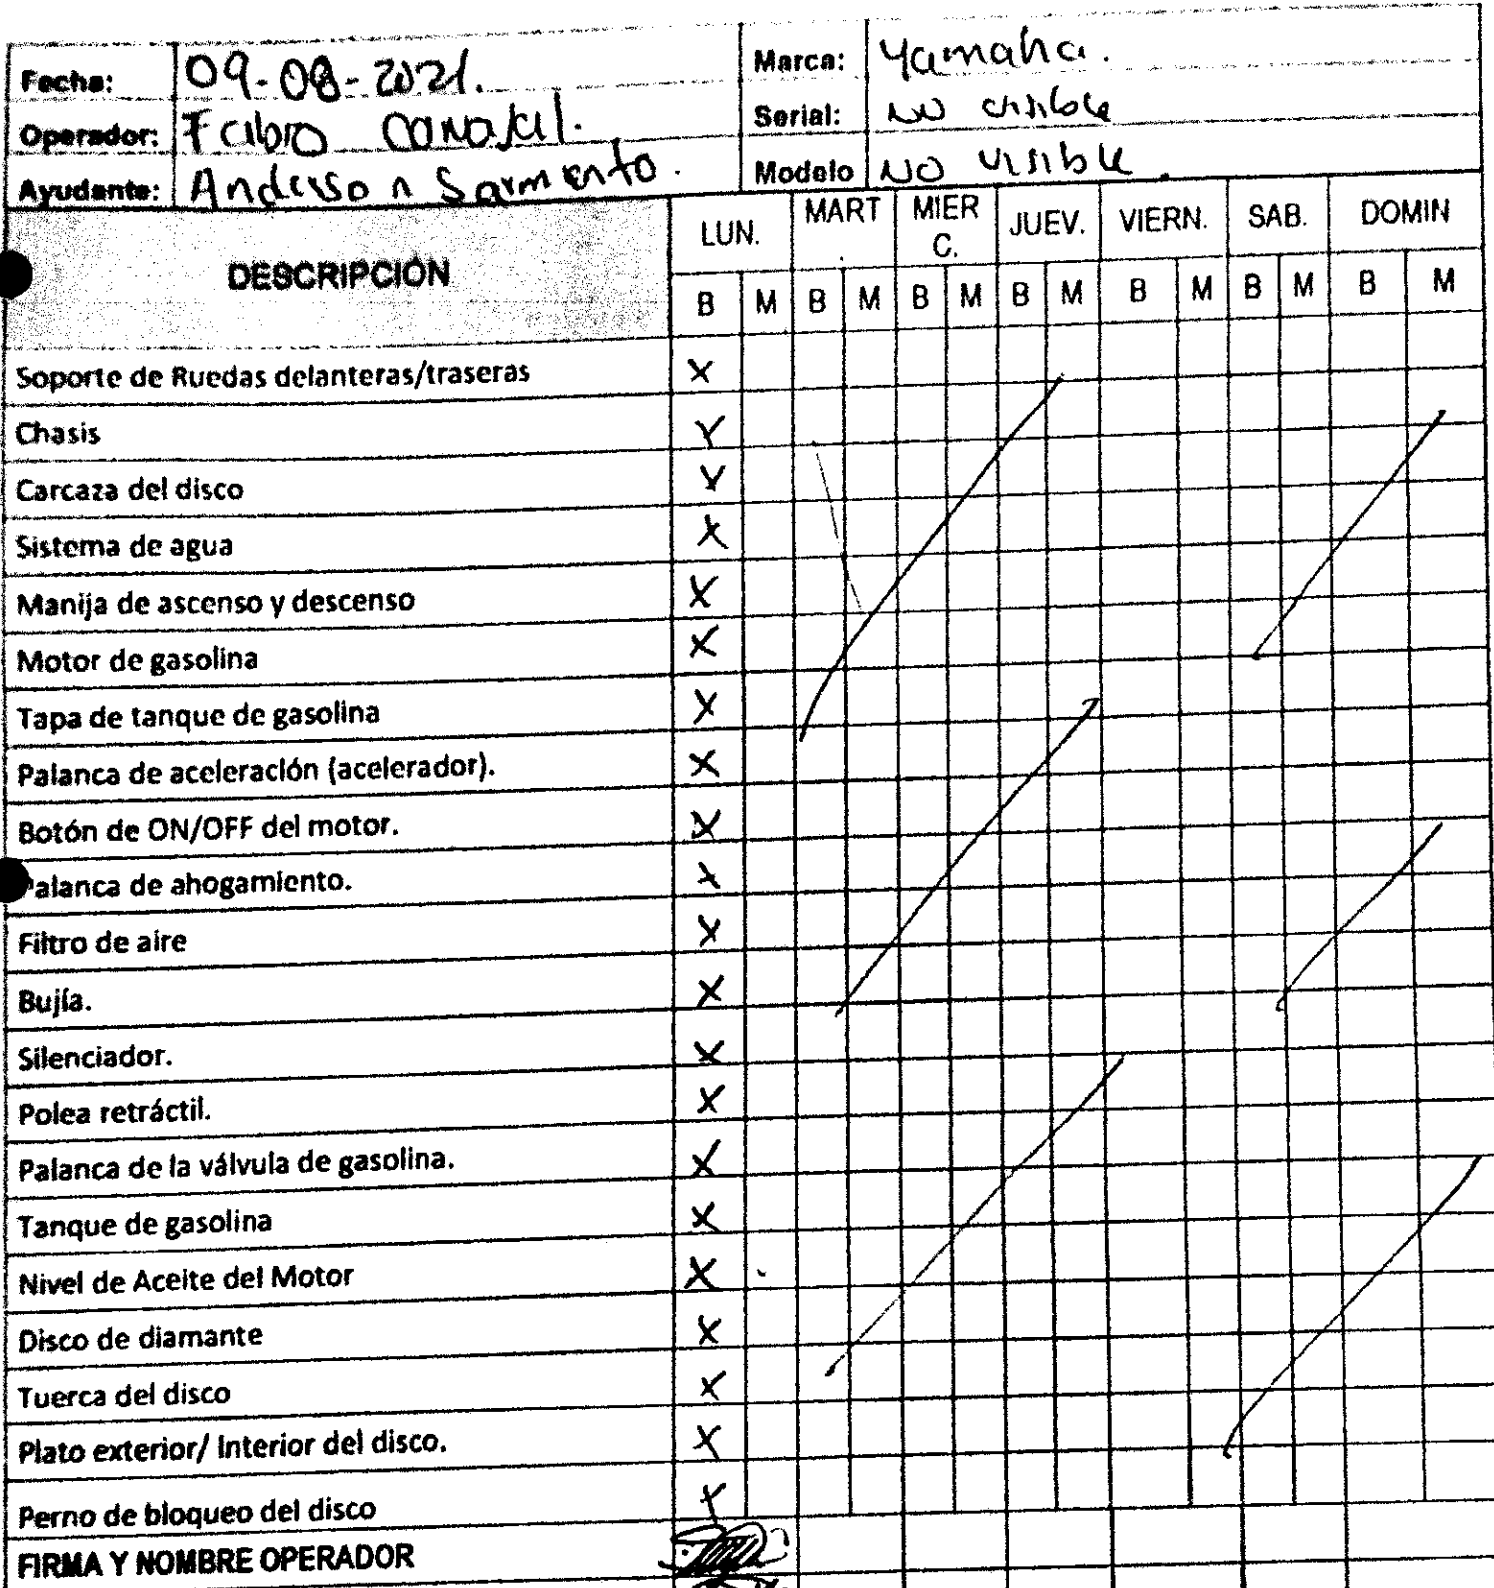 Fecha: 09-08-2021. Marca: Yamaha.
Operador: Fabio Serial: NO visible
Ayudante: Anderson Sarmiento. Modelo NO visible.
DESCRIPCIÓN LUN. MART MIER C. JUEV. VIERN. SAB. DOMIN
B M B M B M B M B M B M B M
Soporte de Ruedas delanteras/traseras X
Chasis X
Carcaza del disco X
Sistema de agua X
Manija de ascenso y descenso X
Motor de gasolina X
Tapa de tanque de gasolina X
Palanca de aceleración (acelerador). X
Botón de ON/OFF del motor. X
Palanca de ahogamiento. X
Filtro de aire X
Bujía. X
Silenciador. X
Polea retráctil. X
Palanca de la válvula de gasolina. X
Tanque de gasolina X
Nivel de Aceite del Motor X
Disco de diamante X
Tuerca del disco X
Plato exterior/ Interior del disco. X
Perno de bloqueo del disco X
FIRMA Y NOMBRE OPERADOR